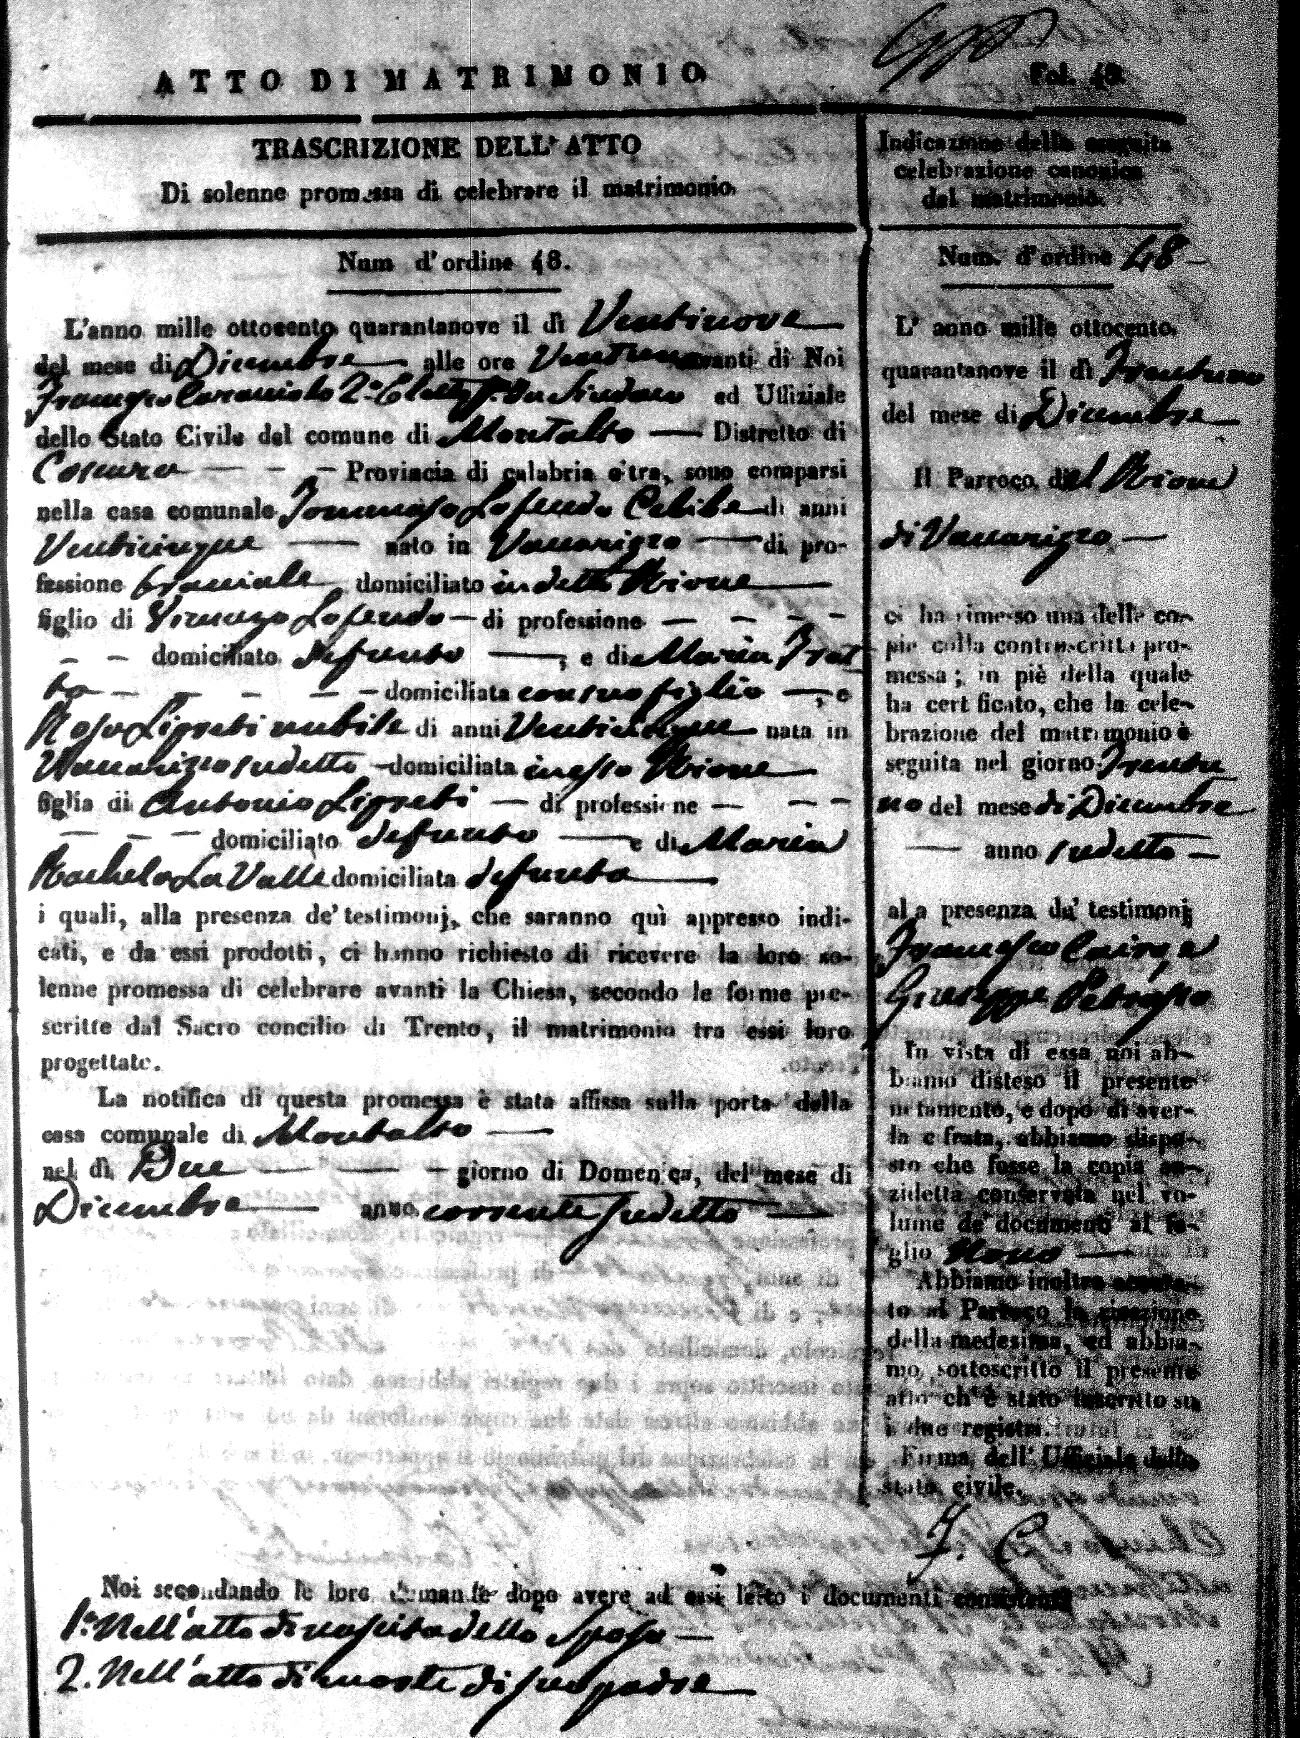 ATTO DI MATRIMONIO
Fol. 48.
TRASCRIZIONE DELL' ATTO
Di solenne promessa di celebrare il matrimonio.
Num d'ordine 48.
L'anno mille ottocento quarantanove il dì Ventinove
del mese di Dicembre alle ore avanti di Noi
Francesco 2.° Sindaco ed Uffiziale
dello Stato Civile del comune di Montalto Distretto di
Cosenza Provincia di calabria citra, sono comparsi
nella casa comunale Tommaso Lofeudo Celibe di anni
Venticinque nato in Vaccarizzo di pro-
fessione bracciale domiciliato in detto Rione
figlio di Vincenzo Lofeudo di professione
domiciliato defunto , e di Maria Trot-
ta domiciliata con suo figlio , e
Rosa Lipreti nubile di anni Venticinque nata in
Vaccarizzo sudetto domiciliata in esso Rione
figlia di Antonio Lipreti di professione
domiciliato defunto e di Maria
Rachela La Valle domiciliata defunta
i quali, alla presenza de' testimonj, che saranno quì appresso indi-
cati, e da essi prodotti, ci hanno richiesto di ricevere la loro so-
lenne promessa di celebrare avanti la Chiesa, secondo le forme pre-
scritte dal Sacro concilio di Trento, il matrimonio tra essi loro
progettato.
La notifica di questa promessa è stata affissa sulla porta della
casa comunale di Montalto
nel dì Due giorno di Domenica, del mese di
Dicembre anno corrente sudetto
Noi secondando le loro dimande dopo avere ad essi letto i documenti consistenti
1.° Nell'atto di nascita dello Sposo
2. Nell'atto di morte di suo padre
Indicazione della seguita
celebrazione canonica
del matrimonio.
Num. d'ordine 48
L' anno mille ottocento
quarantanove il dì Trentuno
del mese di Dicembre
Il Parroco del Rione
di Vaccarizzo
ci ha rimesso una delle co-
pie colla controscritta pro-
messa; in piè della quale
ha certificato, che la cele-
brazione del matrimonio è
seguita nel giorno Trentu
no del mese di Dicembre
anno sudetto
alla presenza da' testimonj
Francesco Cairo, e
Giuseppe Petrasso
In vista di essa noi ab-
biamo disteso il presente
notamento, e dopo di aver-
la cifrata, abbiamo dispo-
sto che fosse la copia an-
zidetta conservata nel vo-
lume de' documenti al fo-
glio Nono
Abbiamo inoltre accusa-
to al Parroco la ricezione
della medesima, ed abbia-
mo sottoscritto il presente
atto ch' è stato inscritto su
i due registri.
Firma dell' Uffiziale dello
stato civile.